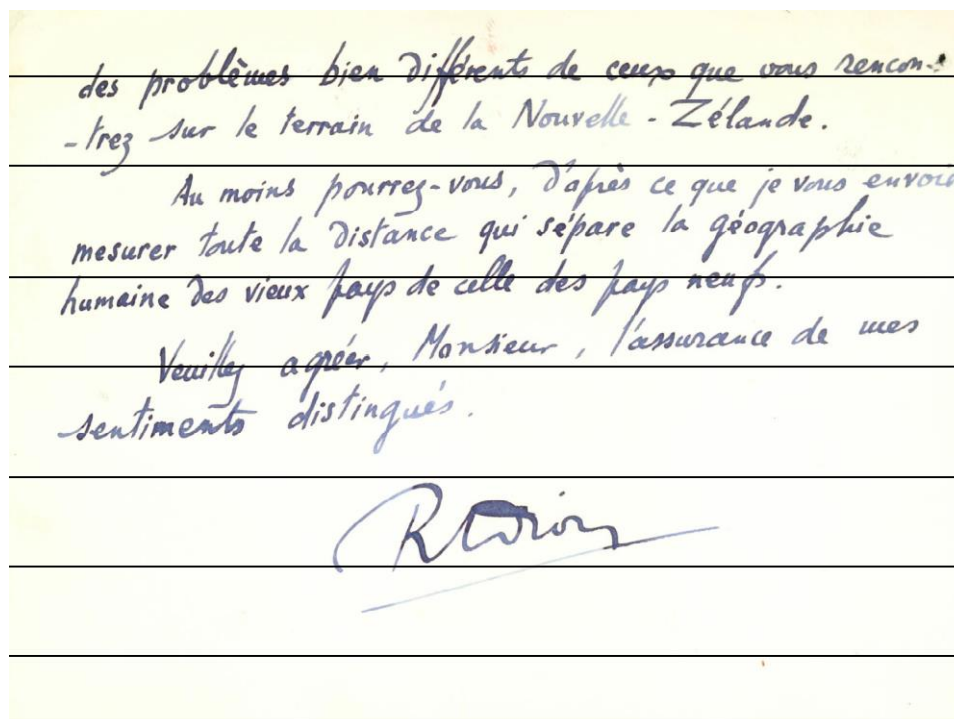 des problèmes bien différents de ceux que vous rencon-
-trez sur le terrain de la Nouvelle-Zélande.
Au moins pourrez-vous, d'après ce que je vous envoie
mesurer toute la distance qui sépare la géographie
humaine des vieux pays de celle des pays neufs.
Veuillez agréer, Monsieur, l'assurance de mes
sentiments distingués.
RDion